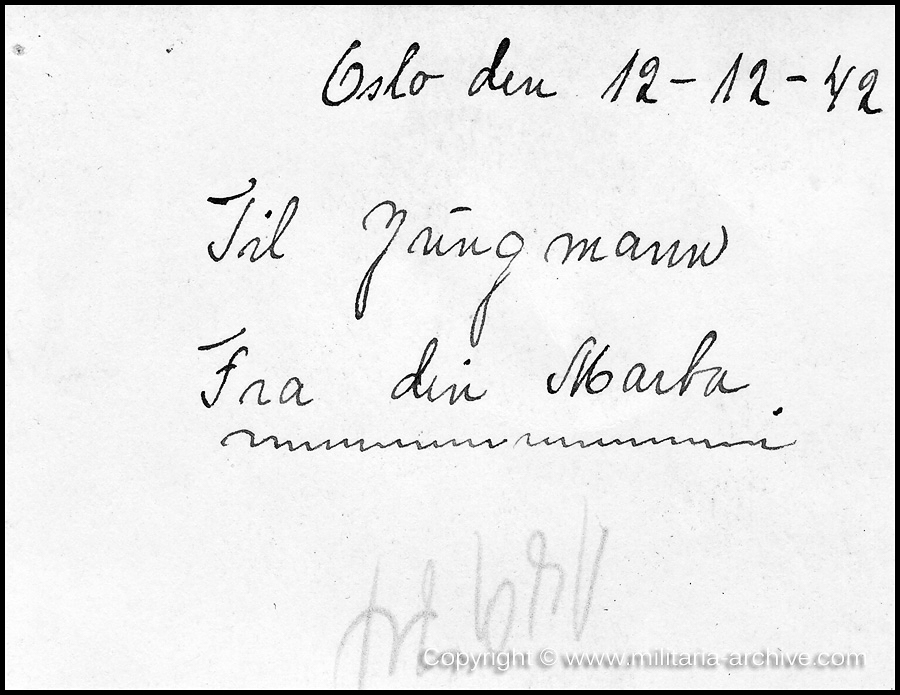 Oslo den 12-12-42
Til Jŭngmann
Fra din Marba
Copyright © www.militaria-archive.com